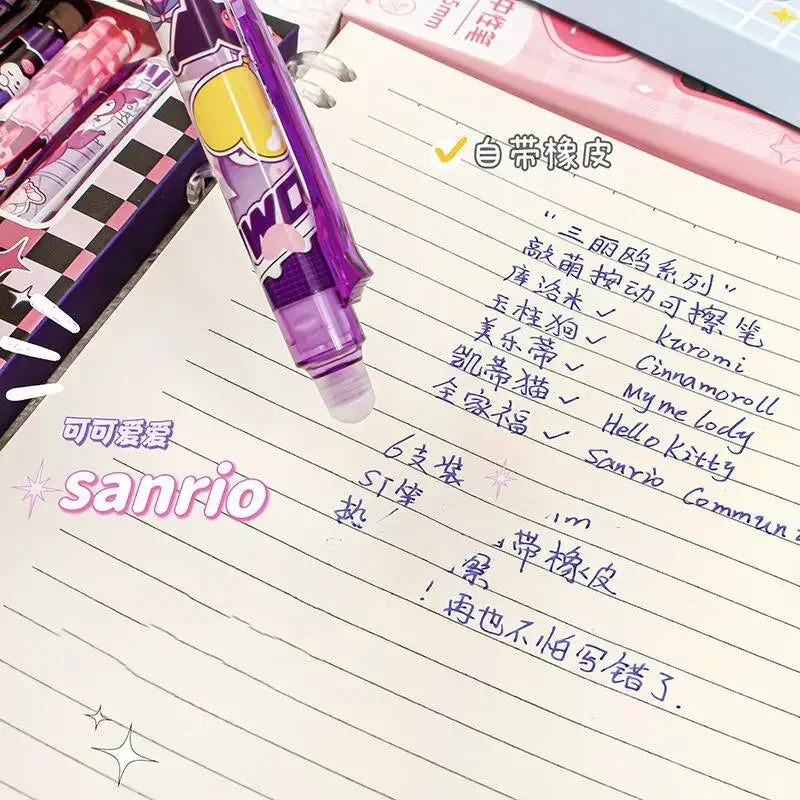 中性笔
5mm
自带橡皮
"三丽鸥系列"
敲萌按动可擦笔
库洛米✓ kuromi
玉桂狗✓ Cinnamoroll
美乐蒂✓ My melody
凯蒂猫✓ Hello Kitty
全家福✓ Sanrio Communi
6支装
ST
热
带橡皮
! 再也不怕写错了.
可可爱爱
sanrio